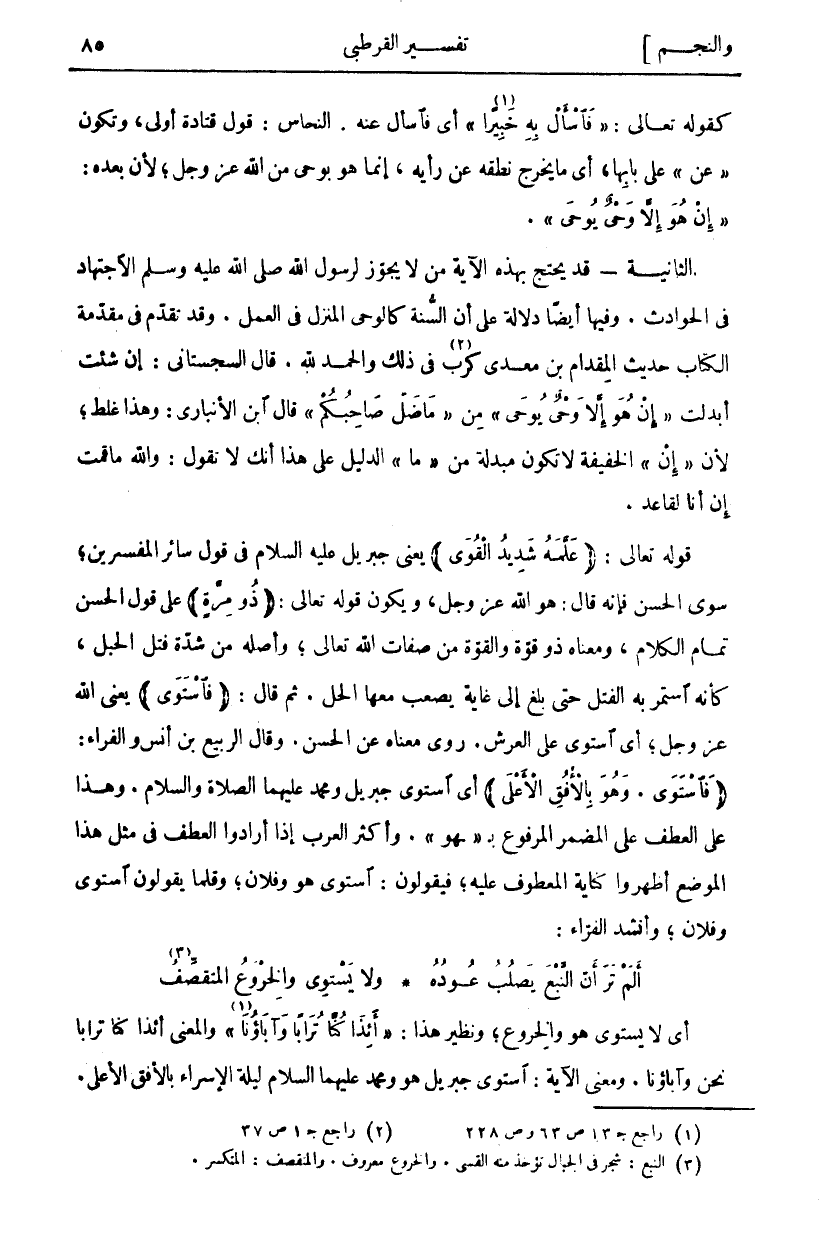 والنجم ] تفسير القرطبى ٨٥
كقوله تعالى : « فَٱسْأَلْ بِهِ خَبِيرًا (١) » أى فٱسأل عنه . النحاس : قول قتادة أولى، وتكون
« عن » على بابها، أى مايخرج نطقه عن رأيه ، إنما هو بوحى من الله عز وجل ؛ لأن بعده :
« إِنْ هُوَ إِلَّا وَحْىٌ يُوحَى » .
الثانيـة — قد يحتج بهذه الآية من لا يجوّز لرسول الله صلى الله عليه وسلم الٱجتهاد
فى الحوادث . وفيها أيضًا دلالة على أن السُّنة كالوحى المنزل فى العمل . وقد تقدّم فى مقدّمة
الكتاب حديث المِقدام بن معدى كَرِب (٢) فى ذلك والحمد لله . قال السجستانى : إن شئت
أبدلت « إِنْ هُوَ إِلَّا وَحْىٌ يُوحَى» مِن « مَاضَلَّ صَاحِبُكُمْ » قال ٱبن الأنبارى : وهذا غلط ؛
لأن « إِنْ » الخفيفة لاتكون مبدلة من « ما » الدليل على هذا أنك لا تقول : والله ماقمت
إن أنا لقاعد .
قوله تعالى : ﴿ عَلَّمَهُ شَدِيدُ الْقُوَى ﴾ يعنى جبريل عليه السلام فى قول سائر المفسرين؛
سوى الحسن فإنه قال : هو الله عز وجل، ويكون قوله تعالى : ﴿ ذُو مِرَّةٍ ﴾ على قول الحسن
تمام الكلام ، ومعناه ذو قوّة والقوّة من صفات الله تعالى ؛ وأصله من شدّة فتل الحبل ،
كأنه ٱستمر به الفتل حتى بلغ إلى غاية يصعب معها الحل . ثم قال : ﴿ فَٱسْتَوَى ﴾ يعنى الله
عز وجل؛ أى ٱستوى على العرش. روى معناه عن الحسن. وقال الربيع بن أنس والفراء :
﴿ فَٱسْتَوَى . وَهُوَ بِالْأُفُقِ الْأَعْلَى ﴾ أى ٱستوى جبريل ومحمد عليهما الصلاة والسلام . وهـذا
على العطف على المضمر المرفوع بـ « ـهو » . وأكثر العرب إذا أرادوا العطف فى مثل هذا
الموضع أظهروا كناية المعطوف عليه؛ فيقولون : ٱستوى هو وفلان؛ وقلما يقولون ٱستوى
وفلان ؛ وأنشد الفرّاء :
أَلَمْ تَرَ أَن النَّبْعَ يَصلُبُ عُـودُهُ * ولا يَسْتوِى والخِرْوَعُ المتقصِّفُ (٣)
أى لا يستوى هو والخِروع؛ ونظير هذا : « أَئِذَا كُنَّا تُرَابًا وَآبَاؤُنَا (١) » والمعنى أئذا كنا ترابا
نحن وآباؤنا . ومعنى الآية : ٱستوى جبريل هو ومحمد عليهما السلام ليلة الإسراء بالأفق الأعلى.
(١) راجع جـ ١٣ ص ٦٣ وص ٢٢٨ (٢) راجع جـ ١ ص ٣٧
(٣) النبع : شجر فى الجبال تؤخذ منه القسى . والخروع معروف . والمتقصف : المتكسر .